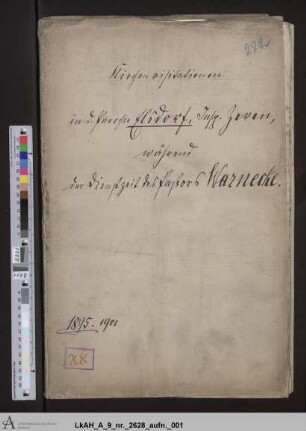 222
Kirchenvisitationen
in d. Parochie Elsdorf, Insp. Zeven,
während
der Dienstzeit des Pastors Warnecke.
1895. 1901
LkAH_A_9_nr._2628_aufn._001